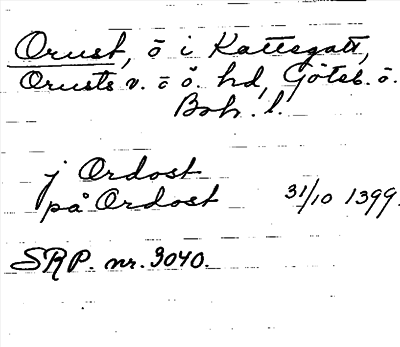 Orust, ö i Kattegatt,
Orusts v. o ö. hd, Göteb. o.
Boh. l.
j Ordost
på Ordost 31/10 1399.
SRP. nr. 3040.